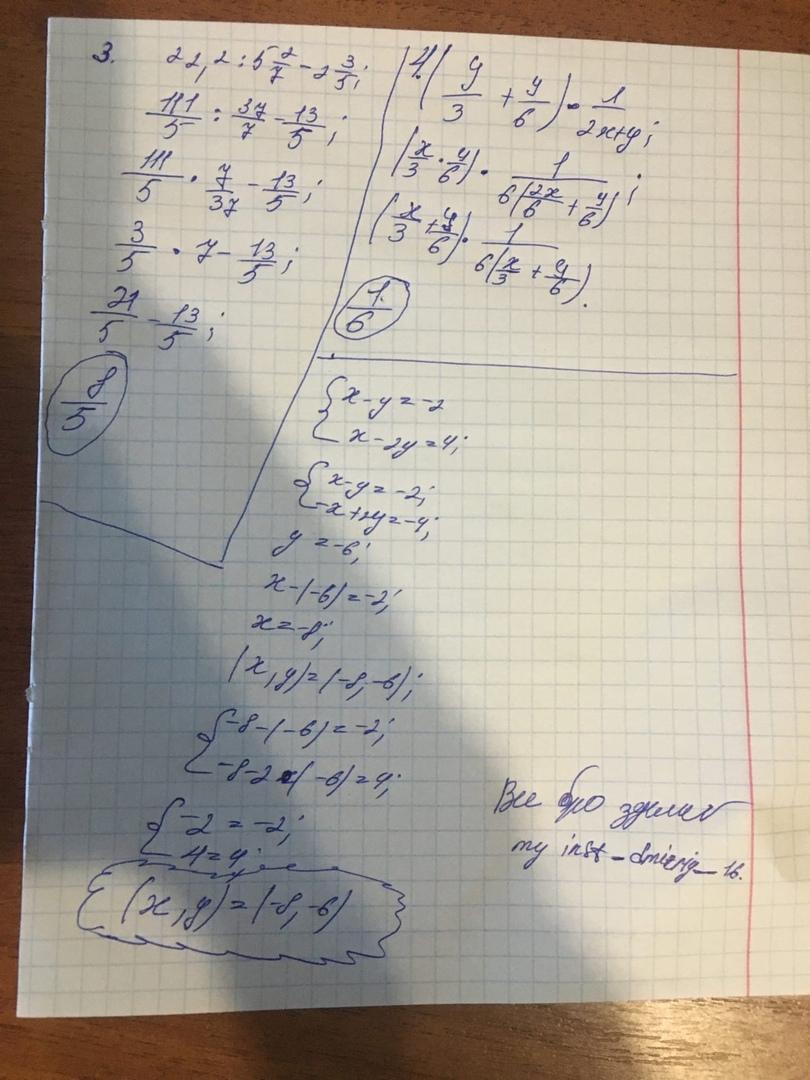 3. 22,2 : 5 2/7 - 2 3/5;
111/5 : 37/7 - 13/5;
111/5 · 7/37 - 13/5;
3/5 · 7 - 13/5;
21/5 - 13/5;
8/5
4. (y/3 + y/6) · 1/2x+y;
(x/3 · y/6) · 1/6(2x/6 + y/6);
(x/3 + y/6) · 1/6(x/3 + y/6).
1/6
{x-y=-2
x-2y=4;
{x-y=-2;
-x+2y=-4;
y=-6;
x-(-6)=-2;
x=-8;
(x,y)=(-8,-6);
{-8-(-6)=-2;
-8-2×(-6)=4;
{-2=-2;
4=4;
(x,y)=(-8,-6)
Все бро зделал
my inst -